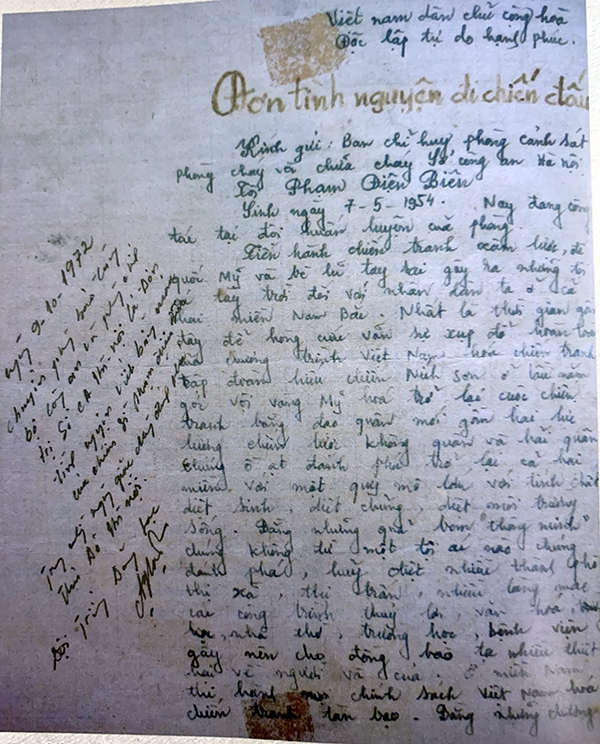 Việt nam dân chủ cộng hòa
Độc lập tự do hạnh phúc.
Đơn tình nguyện đi chiến đấu
Kính gửi: Ban chỉ huy phòng cảnh sát
phòng cháy và chữa cháy Sở công an Hà nội
Tôi Phạm Điện Biên
Sinh ngày 7-5-1954. Nay đang công
tác tại đội huấn luyện của phòng.
Tiến hành chiến tranh xâm lược, đế
quốc Mỹ và bè lũ tay sai gây ra những tội
tày trời đối với nhân dân ta ở cả
hai miền Nam Bắc. Nhất là thời gian gần
đây để hòng cứu vãn sự xụp đổ hoàn toàn
của chương trình Việt Nam hóa chiến tranh
tập đoàn hiếu chiến Ních sơn ở lầu năm
góc vội vàng Mỹ hóa trở lại cuộc chiến
tranh bằng đạo quân mới gồm hai lực
lượng chiến lược không quân và hải quân
chúng ồ ạt đánh phá trở lại cả hai
miền với một quy mô lớn với tính chất
diệt sinh, diệt chủng, diệt môi trường
sống. Bằng những quả bom "thông minh"
chúng không từ một tội ác nào chúng
đánh phá, hủy diệt nhiều thành phố
thị xã, thị trấn, nhiều làng mạc
các công trình thủy lợi, văn hóa,
học, nhà thờ, trường học, bệnh viện
gây nên cho đồng bào ta nhiều thiệt
hại về người và của. Ở miền Nam
thi hành mọi chính sách Việt Nam hóa
chiến tranh tàn bạo. Bằng những
Ngày 9-10-1972
bộ công an và
Sở CA Hà nội
Tình nguyện viết bằng máu
của chiến sĩ Phạm Điện Biên
Thủ đô Hà nội.